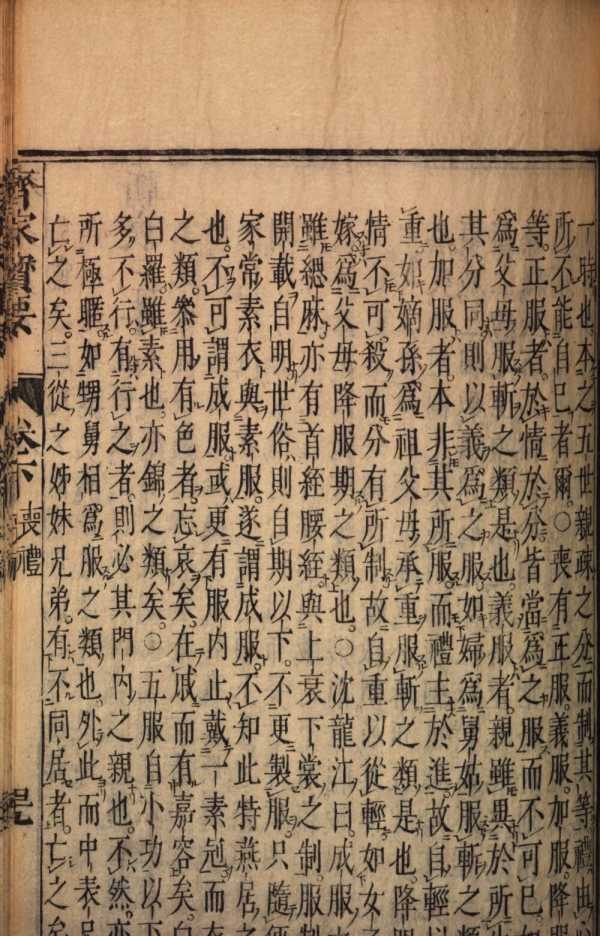 一時也本之五世親疎之分而制其等禮由心
所不能自已者爾○喪有正服義服加服降服
等正服者於情於分皆當爲之服而不可已如
爲父母服斬之類是也義服者親雖異於所生
其分同則以義爲之服如婦爲舅姑服斬之類
也加服者本非其所服而禮主於進故自輕以
重如嫡孫爲祖父母承重服斬之類是也降服
情不可殺而分有所制故自重以從輕如女子
嫁爲父母降服期之類也○沈龍江曰成服
雖緦麻亦有首絰腰絰與上衰下裳之制服制
開載自明世俗則自期以下不更製服只隨便
家常素衣與素服遂謂成服不知此特燕居之
也不可謂成服或更有服內止戴一素冠而衣
之類參用有色者忘哀矣在戚而有嘉容矣白
白羅雖素也亦錦之類矣○五服自小功以下
多不行有行之者則必其門內之親也不然亦
所極暱如甥舅相爲服之類也外此而中表兄
亡之矣三從之姊妹兄弟有不同居者亡之矣
齊家寶要 卷下 喪禮